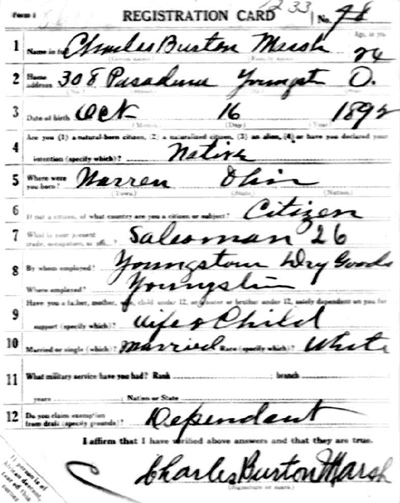 Form 1
1233
REGISTRATION CARD No. 48
1 Name in full Charles Burton Marsh 24
Age, in yrs.
2 Home address 308 Pasadena Youngst O.
3 Date of birth Oct 16 1892
(Month) (Day) (Year)
Are you (1) a natural-born citizen, (2) a naturalized citizen, (3) an alien, (4) or have you declared your
4 intention (specify which)? Native
5 Where were you born? Warren Ohio
(Town) (State) (Nation)
6 If not a citizen, of what country are you a citizen or subject? Citizen
7 What is your present trade, occupation, or office? Salesman 26
8 By whom employed? Youngstown Dry Goods
Where employed? Youngstown
Have you a father, mother, wife, child under 12, or a sister or brother under 12, solely dependent on you for
9 support (specify which)? Wife & Child
10 Married or single (which)? Married Race (specify which)? White
11 What military service have you had? Rank branch
years Nation or State
12 Do you claim exemption from draft (specify grounds)? Dependent
I affirm that I have verified above answers and that they are true.
Charles Burton Marsh
(Signature or mark)
If person is of African descent,